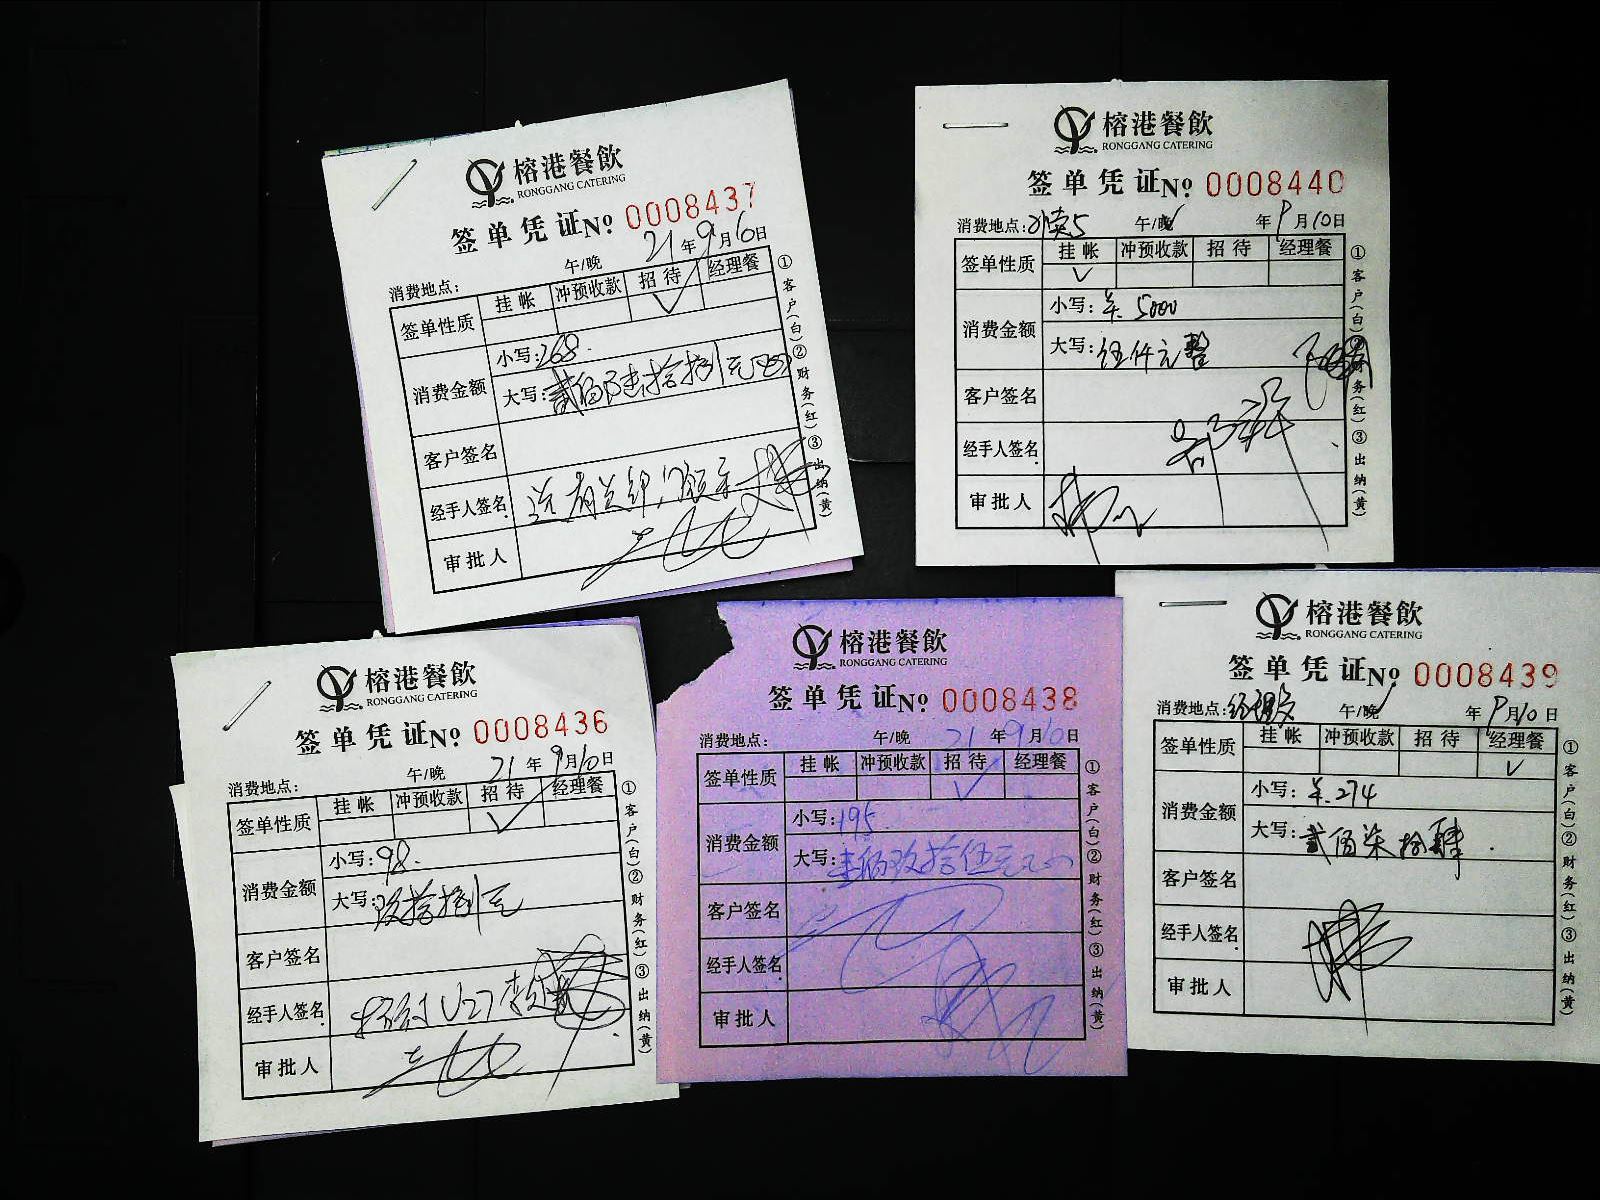 榕港餐飲
RONGGANG CATERING
签单凭证 No 0008437
21年9月10日
消费地点： 午/晚
签单性质 挂帐 冲预收款 招待 经理餐
√
消费金额 小写：268.
大写：贰佰陆拾捌元
客户签名
经手人签名
审批人
①客户(白)②财务(红)③出纳(黄)
榕港餐飲
RONGGANG CATERING
签单凭证 No 0008440
消费地点： 午/晚 年9月10日
签单性质 挂帐 冲预收款 招待 经理餐
√
消费金额 小写：羊 5000
大写：伍仟元整
客户签名
经手人签名
审批人
①客户(白)②财务(红)③出纳(黄)
榕港餐飲
RONGGANG CATERING
签单凭证 No 0008436
21年9月10日
消费地点： 午/晚
签单性质 挂帐 冲预收款 招待 经理餐
√
消费金额 小写：98.
大写：玖拾捌元
客户签名
经手人签名 U27
审批人
①客户(白)②财务(红)③出纳(黄)
榕港餐飲
RONGGANG CATERING
签单凭证 No 0008438
消费地点： 午/晚 21年9月10日
签单性质 挂帐 冲预收款 招待 经理餐
√
消费金额 小写：195
大写：壹佰玖拾伍元
客户签名
经手人签名
审批人
①客户(白)②财务(红)③出纳(黄)
榕港餐飲
RONGGANG CATERING
签单凭证 No 0008439
消费地点：经理 午/晚 年9月10日
签单性质 挂帐 冲预收款 招待 经理餐
√
消费金额 小写：羊.274
大写：贰佰柒拾肆.
客户签名
经手人签名
审批人
①客户(白)②财务(红)③出纳(黄)